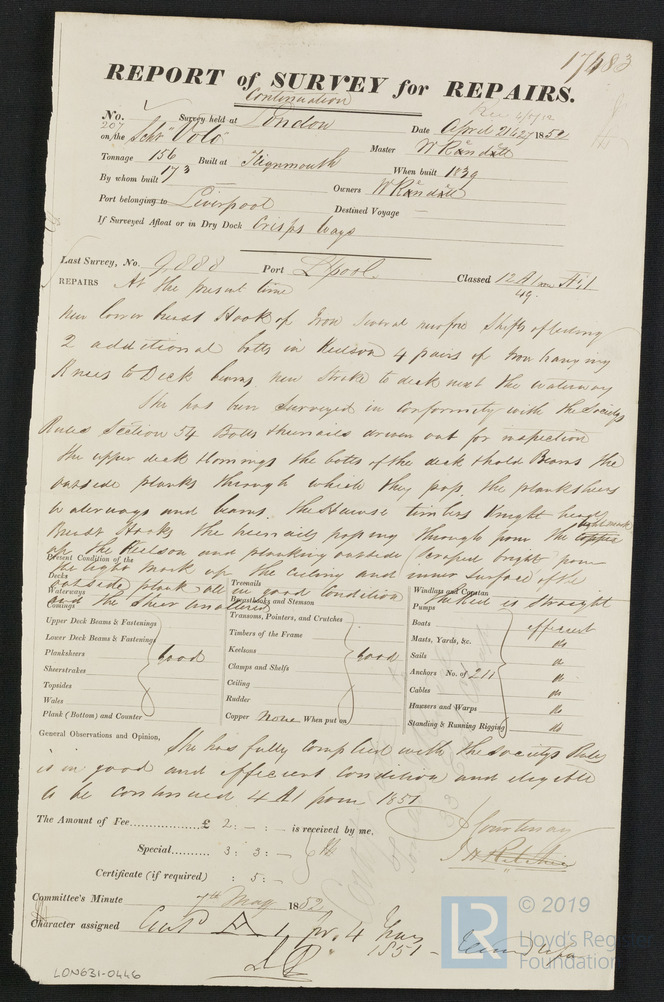 17483
REPORT of SURVEY for REPAIRS.
Continuation
No. 207 Survey held at London Date April 21 1852
on the Schr "Volo" Master W Randell
Tonnage 156 173 Built at Teignmouth When built 1839
By whom built Owners W Randell
Port belonging to Liverpool Destined Voyage —
If Surveyed Afloat or in Dry Dock Crisps Ways
Last Survey, No. 9888 Port Lpool. Classed 12 A1 49.
REPAIRS At the present time
new lower breast Hook of Iron several new fore Shifts of ceiling
2 additional bolts in Keelson 4 pairs of Iron hanging
Knees to Deck beams, new Strake to deck next the waterway
She has been Surveyed in Conformity with the Societys
Rules Section 34 Bolts & treenails driven out for inspection
the upper deck & Comings the bolts of the deck & hold Beams the
outside planks through which they pass, the planksheers
waterways and beams. the Hawse timbers Knight heads
Breast Hooks the treenails passing through from the light mark
up the Keelson and planking outside scraped bright from
the light mark up the ceiling and inner surface of the
outside plank all in good condition She Kid is Straight
and the Sheer unaltered
Present Condition of the
Decks
Waterways
Comings
Upper Deck Beams & Fastenings
Lower Deck Beams & Fastenings
Planksheers good
Sheerstrakes
Topsides
Wales
Plank (Bottom) and Counter
Treenails
Breasthooks and Stemson
Transoms, Pointers, and Crutches
Timbers of the Frame
Keelsons good
Clamps and Shelfs
Ceiling
Rudder
Copper None When put on
Windlass and Capstan
Pumps
Boats efficient
Masts, Yards, &c. do
Sails do
Anchors No. of 211 do
Cables do
Hawsers and Warps do
Standing & Running Rigging do
General Observations and Opinion, She has fully complied with the Societys Rules
is in good and efficient Condition and elegible
to be continued 4 A1 from 1851
The Amount of Fee £ 2: - : - is received by me,
Special 3: 3: - Courtenay
Certificate (if required) : 5: - J H Ritchie
Committee's Minute 7th May 1852
Character assigned Cont'd A 1 for 4 Years
1851
LON631-0446
LR
© 2019
Lloyd's Register
Foundation